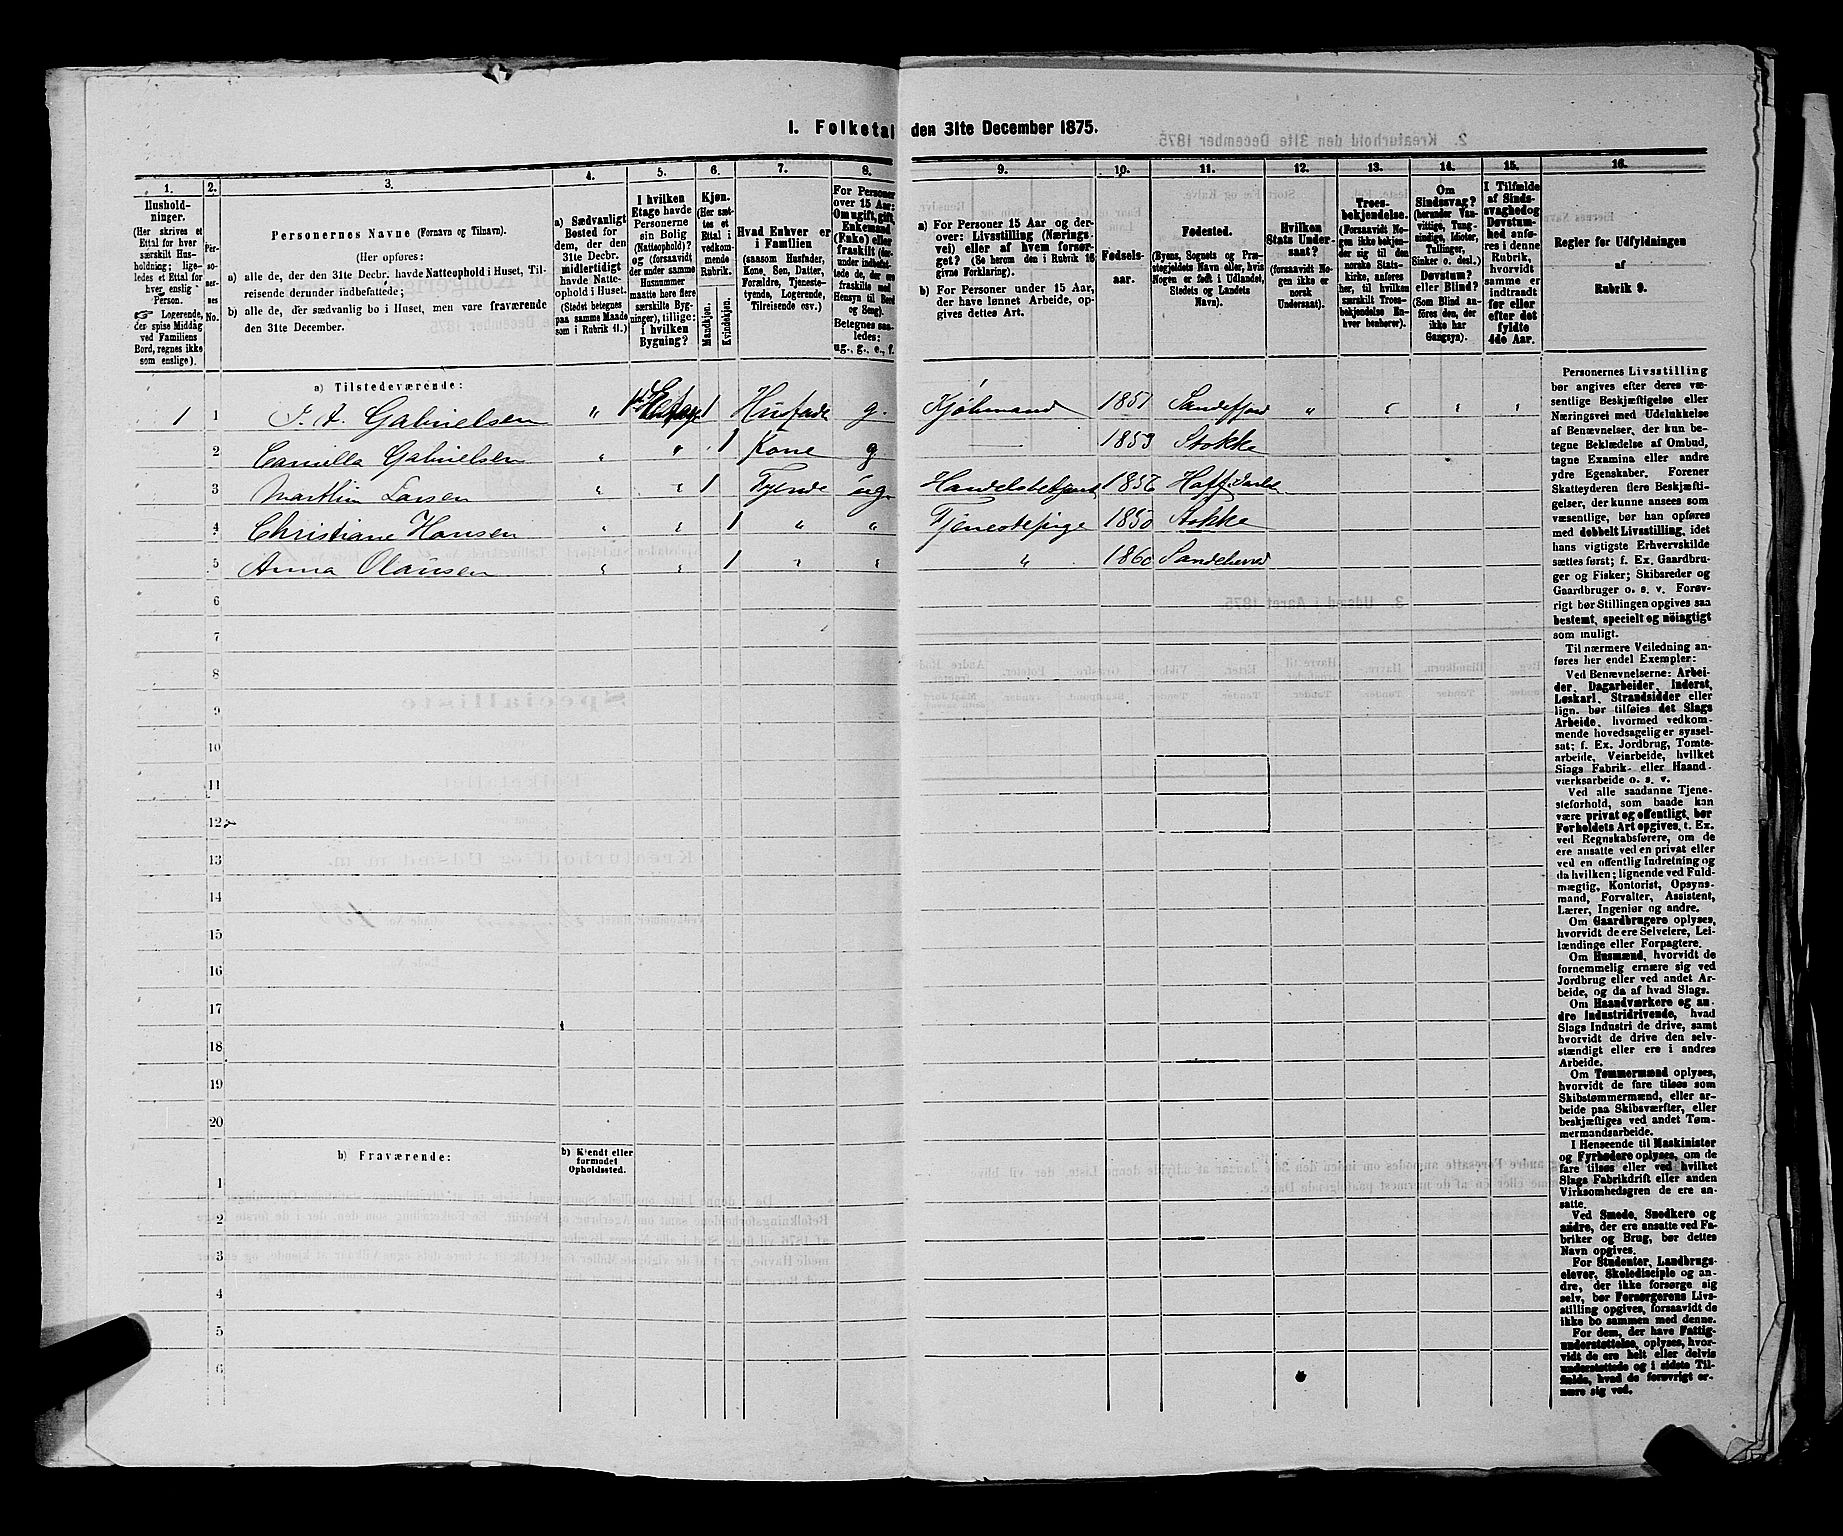 I. Folketal den 31te December 1875.
1. Husholdninger. (Her skrives et Ettal for hver særskilt Husholdning; ligeledes et Ettal for hver enslig Person. Logerende, der spise Middag ved Familiens Bord, regnes ikke som enslige).
2. Personernes No.
3. Personernes Navne (Fornavn og Tilnavn).
(Her opføres:
a) alle de, der den 31te Decbr. havde Natteophold i Huset, Tilreisende derunder indbefattede;
b) alle de, der sædvanlig bo i Huset, men vare fraværende den 31te December.
4. a) Sædvanligt Bosted for dem, der den 31te Decbr. midlertidigt havde Natteophold i Huset. (Stedet betegnes paa samme Maade som i Rubrik 11.)
5. I hvilken Etage havde Personerne sin Bolig (Natteophold)? og (forsaavidt der under samme Husnummer maatte høre flere særskilte Bygninger), tillige: I hvilken Bygning?
6. Kjøn. (Her sættes et Ettal i vedkommende Rubrik.
Mandkjøn. Kvindekjøn.
7. Hvad Enhver er i Familien (saasom Husfader, Kone, Søn, Datter, Forældre, Tjenestetyende, Logerende, Tilreisende osv.)
8. For Personer over 15 Aar: Om ugift, gift, Enkemand (Enke) eller fraskilt (derunder indbefattede de, der ere fraskilte med Hensyn til Bord og Seng). Betegnes saaledes: ug., g., e., f.
9. a) For Personer 15 Aar og derover: Livsstilling (Næringsvei) eller af hvem forsørget? (Se herom den i Rubrik 16 givne Forklaring).
b) For Personer under 15 Aar, der have lønnet Arbeide, opgives dettes Art.
10. Fødselsaar.
11. Fødested. (Byens, Sognets og Præstegjeldets Navn, eller, hvis Nogen er født i Udlandet, Stedets og Landets Navn).
12. Hvilken Stats Undersaat? (forsaavidt Nogen ikke er norsk Undersaat).
13. Troesbekjendelse. (Forsaavidt Nogen ikke bekjender sig til den norske Statskirke, anføres her, til hvilken særskilt Troesbekjendelse Enhver henhører).
14. Om Sindssvag? (herunder Vanvittige, Tungsindige, Idioter, Tullinger, Sinker o. desl.). Døvstum? eller Blind? (Som Blind anføres den, der ikke har Gangsyn).
15. I Tilfælde af Sindssvaghed og Døvstumhed anføres i denne Rubrik, hvorvidt samme er indtraadt før eller efter det fyldte 4de Aar.
16. Regler for Udfyldningen af Rubrik 9.
a) Tilstedeværende:
1 1 J. A. Gabrielsen „ Etage 1 Husfader g. Kjøbmand 1851 Sandefjord „ „ „ „
2 Camilla Gabrielsen „ „ 1 Kone g 1853 Stokke
3 Marthin Larsen „ „ 1 Tyende ug Handelsbetjent 1856
4 Christiane Hansen „ „ 1 „ „ Tjenestepige 1850 Stokke
5 Anna Olausen „ „ 1 „ „ „ 1860 Sandeherred
6
7
8
9
10
11
12
13
14
15
16
17
18
19
20
b) Fraværende: b) Kjendt eller formodet Opholdsted.
1
2
3
4
5
6
Personernes Livsstilling
bør angives efter deres væ-
sentlige Beskjæftigelse eller
Næringsvei med Udelukkelse
af Benævnelser, der kun be-
tegne Beklædelse af Ombud,
tagne Examina eller andre
ydre Egenskaber. Forener
Skatteyderen flere Beskjæfti-
gelser, der kunne ansees som
væsentlige, bør han opføres
med dobbelt Livsstilling, idet
hans vigtigste Erhvervskilde
sættes først; f. Ex. Gaardbru-
ger og Fisker; Skibsreder og
Gaardbruger o. s. v. Forøv-
rigt bør Stillingen opgives saa
bestemt, specielt og nöiagtigt
som muligt.
Til nærmere Veiledning an-
føres her endel Exempler:
Ved Benævnelserne: Arbei-
der, Dagarbeider, Inderst,
Løskarl, Strandsidder eller
lign. bør tilføies det Slags
Arbeide, hvormed vedkom-
mende hovedsagelig er syssel-
sat; f. Ex. Jordbrug, Tomte-
arbeide, Veiarbeide, hvilket
Slags Fabrik- eller Haand-
værksarbeide o. s. v.
Ved alle saadanne Tjene-
steforhold, som baade kan
være privat og offentligt, bør
Forholdets Art opgives, f. Ex.
ved Regnskabsførere, om de
ere ansatte ved en privat eller
ved en offentlig Indretning og
da hvilken; lignende ved Fuld-
mægtig, Kontorist, Opsyns-
mand, Forvalter, Assistent,
Lærer, Ingeniør og andre.
Om Gaardbrugere oplyses,
hvorvidt de ere Selveiere, Lei-
lændinge eller Forpagtere.
Om Husmænd, hvorvidt de
fornemmelig ernære sig ved
Jordbrug eller ved andet Ar-
beide, og da af hvad Slags.
Om Haandværkere og an-
dre Industridrivende, hvad
Slags Industri de drive, samt
hvorvidt de drive den selv-
stændigt eller ere i andres
Arbeide.
Om Tømmermænd oplyses,
hvorvidt de fare tilsøs som
Skibstømmermænd, eller ar-
beide paa Skibsværfter, eller
beskjæftiges ved andet Tøm-
mermandsarbeide.
I Henseende til Maskinister
og Fyrbødere oplyses, om de
fare tilsøs eller ved hvilket
Slags Fabrikdrift eller anden
Virksomhedsgren de ere an-
satte.
Ved Smede, Snedkere og
andre, der ere ansatte ved Fa-
briker og Brug, bør dettes
Navn opgives.
For Studenter, Landbrugs-
elever, Skoledisciple og an-
dre, der ikke forsørge sig
selv, bør Forsørgerens Livs-
stilling opgives, forsaavidt de
ikke bo sammen med denne.
For dem, der have Fattig-
understøttelse, oplyses, hvor-
vidt de ere helt eller delvis
understøttede og i sidste Til-
fælde, hvad de forøvrigt er-
nære sig ved.